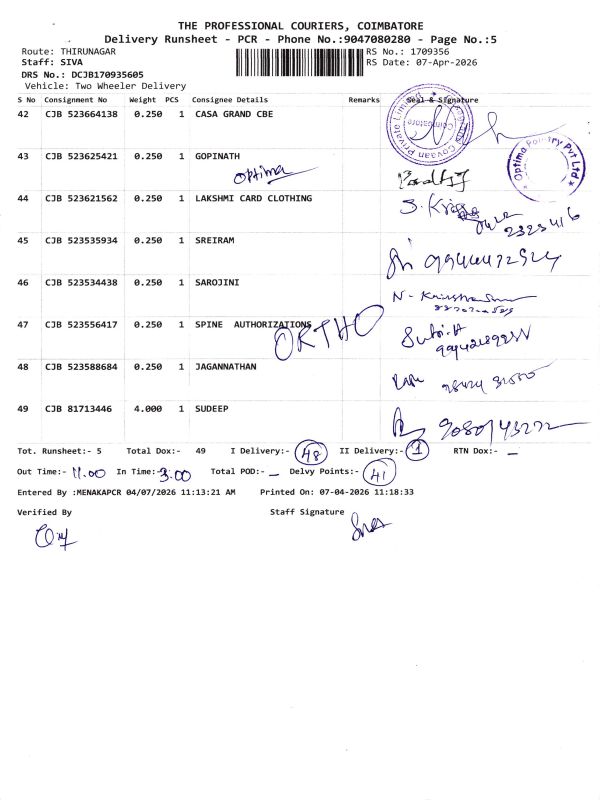 THE PROFESSIONAL COURIERS, COIMBATORE
Delivery Runsheet - PCR - Phone No.:9047080280 - Page No.:5
Route: THIRUNAGAR RS No.: 1709356
Staff: SIVA RS Date: 07-Apr-2026
DRS No.: DCJB170935605
Vehicle: Two Wheeler Delivery
S No Consignment No Weight PCS Consignee Details Remarks Seal & Signature
42 CJB 523664138 0.250 1 CASA GRAND CBE
Covaan Private Limited
Coimbatore
43 CJB 523625421 0.250 1 GOPINATH
Optima
Optima Poultry Pvt Ltd
44 CJB 523621562 0.250 1 LAKSHMI CARD CLOTHING
45 CJB 523535934 0.250 1 SREIRAM
46 CJB 523534438 0.250 1 SAROJINI
47 CJB 523556417 0.250 1 SPINE AUTHORIZATIONS
ORTHO
48 CJB 523588684 0.250 1 JAGANNATHAN
49 CJB 81713446 4.000 1 SUDEEP
Tot. Runsheet:- 5 Total Dox:- 49 I Delivery:- 48 II Delivery:- 1 RTN Dox:- —
Out Time:- 11.00 In Time:- 3:00 Total POD:- — Delvy Points:- 41
Entered By :MENAKAPCR 04/07/2026 11:13:21 AM Printed On: 07-04-2026 11:18:33
Verified By Staff Signature